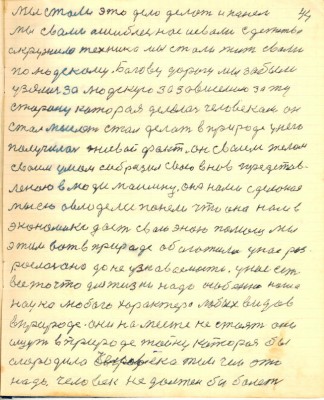 44
мы стали это дело делат и понели
мы своими ошибками наше с детства
окружило техника мы стали жит свои
по людскому. Богову дорогу мы забыли
узяли за людскую за зависемаю за ту
старану которая делала человекам он
стал мыслит стал делат в природе у него
получился живой факт. он своим телом
своим умом сибразил свою внов представ-
леною в люди машину, она нами сделоная
мыслю овлодели понели что она нам в
экономике дает свою эною помощ мы
этим вот в природе обаготили у нас роз-
рослос оно до не узноваемости. у нас ест
все то что для жизни надо особено наша
наука любого характера любых видов
в природе. они на месте не стаят они
ищут в природе тайну которая бы
огородила человека тем чем это
надо, человек не должен бы болет